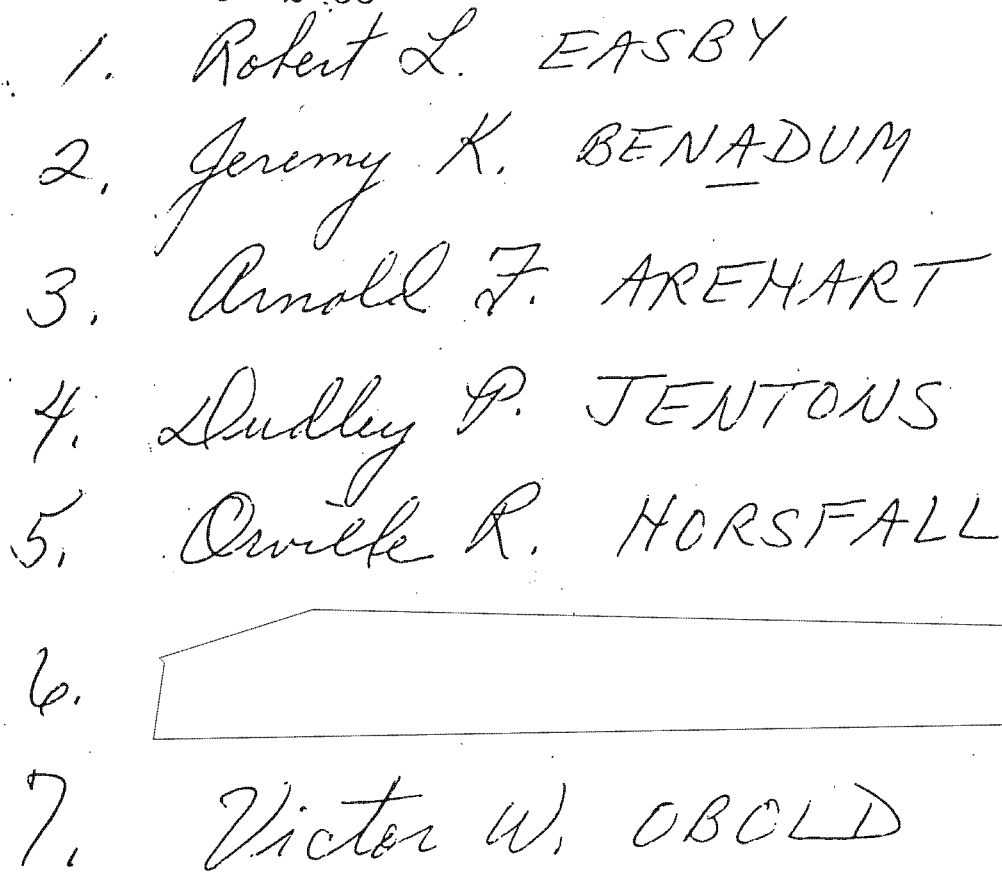 1. Robert L. EASBY
2. Jeremy K. BENADUM
3. Arnold F. AREHART
4. Dudley P. JENTONS
5. Orville R. HORSFALL
6.
7. Victor W. OBOLD